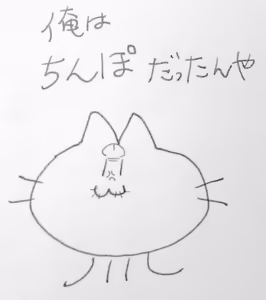 俺は
ちんぽ だったんや